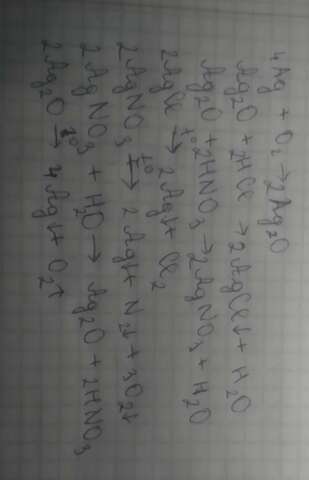 4Ag + O₂ → 2Ag₂O
Ag₂O + 2HCl → 2AgCl↓ + H₂O
Ag₂O + 2HNO₃ → 2AgNO₃ + H₂O
2AgCl →t° 2Ag↓ + Cl₂
2AgNO₃ →t° 2Ag↓ + N₂↓ + 3O₂↓
2AgNO₃ + H₂O → Ag₂O + 2HNO₃
2Ag₂O →t° 4Ag↓ + O₂↑